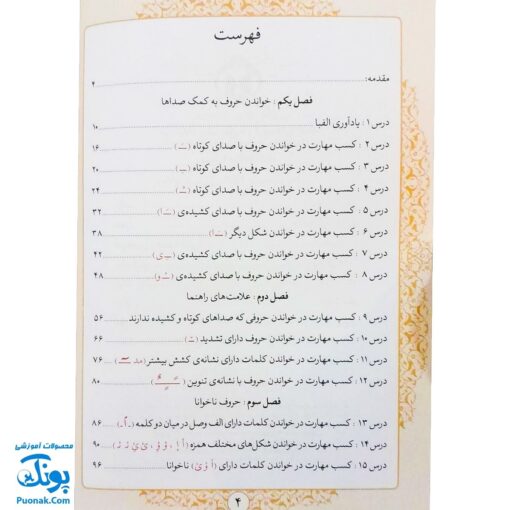 فهرست
مقدمه: ۴
فصل یکم : خواندن حروف به کمک صداها
درس ۱ : یادآوری الفبا ۱۰
درس ۲ : کسب مهارت در خواندن حروف با صدای کوتاه (ـَ) ۱۶
درس ۳ : کسب مهارت در خواندن حروف با صدای کوتاه (ـِ) ۲۰
درس ۴ : کسب مهارت در خواندن حروف با صدای کوتاه (ـُ) ۲۴
درس ۵ : کسب مهارت در خواندن حروف با صدای کشیده‌ی (ـَ ا) ۳۲
درس ۶ : کسب مهارت در خواندن شکل دیگر (ـَ ا) ۳۸
درس ۷ : کسب مهارت در خواندن حروف با صدای کشیده‌ی (ـِ ی) ۴۲
درس ۸ : کسب مهارت در خواندن حروف با صدای کشیده‌ی (ـُ و) ۴۸
فصل دوم : علامت‌های راهنما
درس ۹ : کسب مهارت در خواندن حروفی که صداهای کوتاه و کشیده ندارند ۵۶
درس ۱۰ : کسب مهارت در خواندن حروف دارای تشدید (ـّ) ۶۶
درس ۱۱ : کسب مهارت در خواندن کلمات دارای نشانه‌ی کشش بیشتر (مد ـٓ) ۷۶
درس ۱۲ : کسب مهارت در خواندن حروف با نشانه‌ی تنوین (ـًـٍـٌ) ۸۰
فصل سوم : حروف ناخوانا
درس ۱۳ : کسب مهارت در خواندن کلمات دارای الف وصل در میان دو کلمه ۸۶
درس ۱۴ : کسب مهارت در خواندن شکل‌های مختلف همزه ۹۰
درس ۱۵ : کسب مهارت در خواندن کلمات دارای ناخوانا ۹۶
۴
محصولات آموزشی
پونک
Puonak.Com